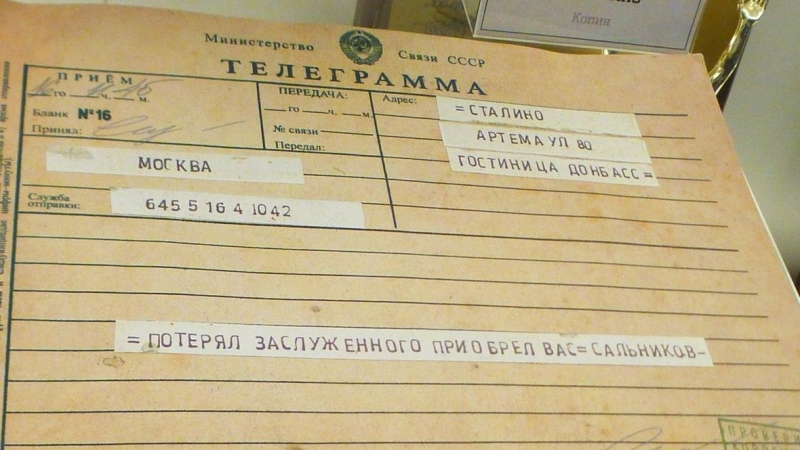 Копия
Министерство Связи СССР
ТЕЛЕГРАММА
ПРИЁМ
го ч. м.
Бланк №16
Принял:
ПЕРЕДАЧА:
го ч. м.
№ связи
Передал:
Адрес:
=СТАЛИНО
АРТЕМА УЛ 80
ГОСТИНИЦА ДОНБАСС=
МОСКВА
Служба отправки:
645 5 16 4 1042
=ПОТЕРЯЛ ЗАСЛУЖЕННОГО ПРИОБРЕЛ ВАС=САЛЬНИКОВ-